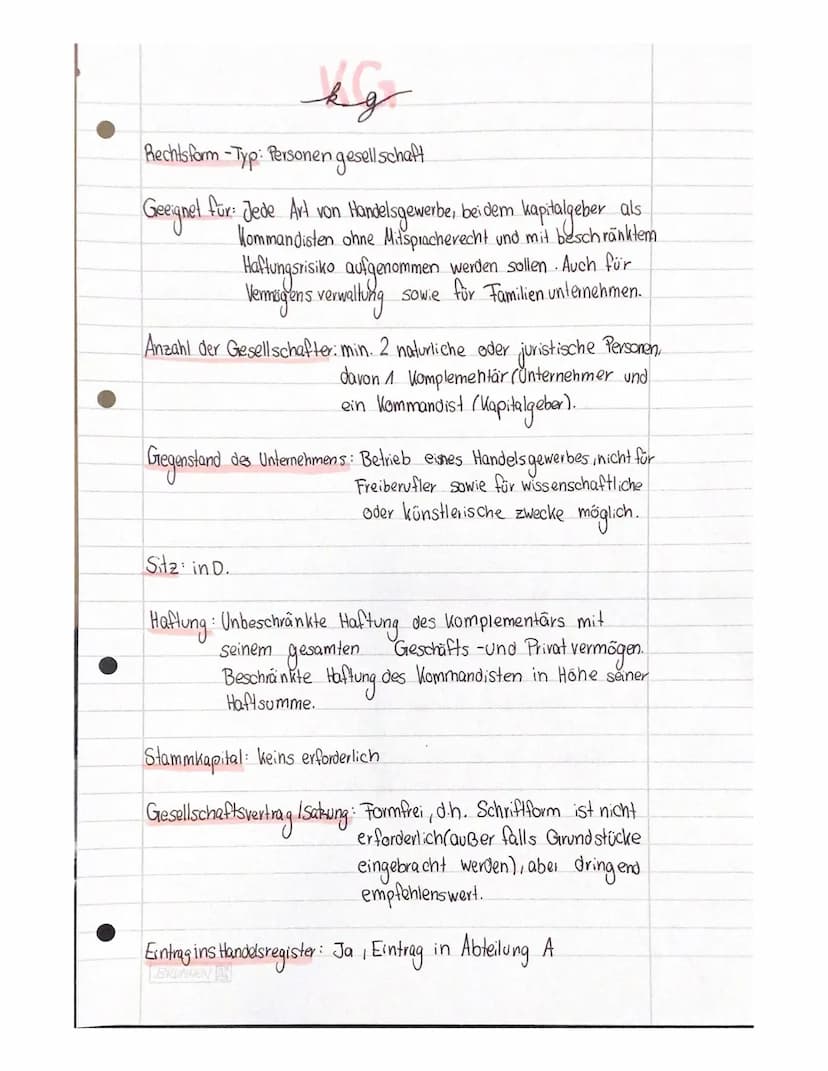 KG
kg
Rechtsform -Typ: Personengesellschaft
Geeignet für: Jede Art von Handelsgewerbe, bei dem kapitalgeber als
Kommandisten ohne Mitspracherecht und mit beschränktem
Haftungsrisiko aufgenommen werden sollen. Auch für
Vermögensverwaltung sowie für Familienunternehmen.
Anzahl der Gesellschafter: min. 2 naturliche oder juristische Personen,
davon 1 Komplementär (Unternehmer und
ein Kommandist (Kapitalgeber).
Gegenstand des Unternehmens: Betrieb eines Handelsgewerbes, nicht für
Freiberufler sowie für wissenschaftliche
oder künstlerische zwecke möglich.
Sitz: in D.
Haftung: Unbeschränkte Haftung des Komplementärs mit
seinem gesamten Geschäfts -und Privatvermögen.
Beschränkte Haftung des Kommandisten in Höhe seiner
Haftsumme.
Stammkapital: keins erforderlich
Gesellschaftsvertrag/Satzung: Formfrei, d.h. Schriftform ist nicht
erforderlich (außer falls Grundstücke
eingebracht werden), aber dringend
empfehlenswert.
Eintrag ins Handelsregister: Ja, Eintrag in Abteilung A